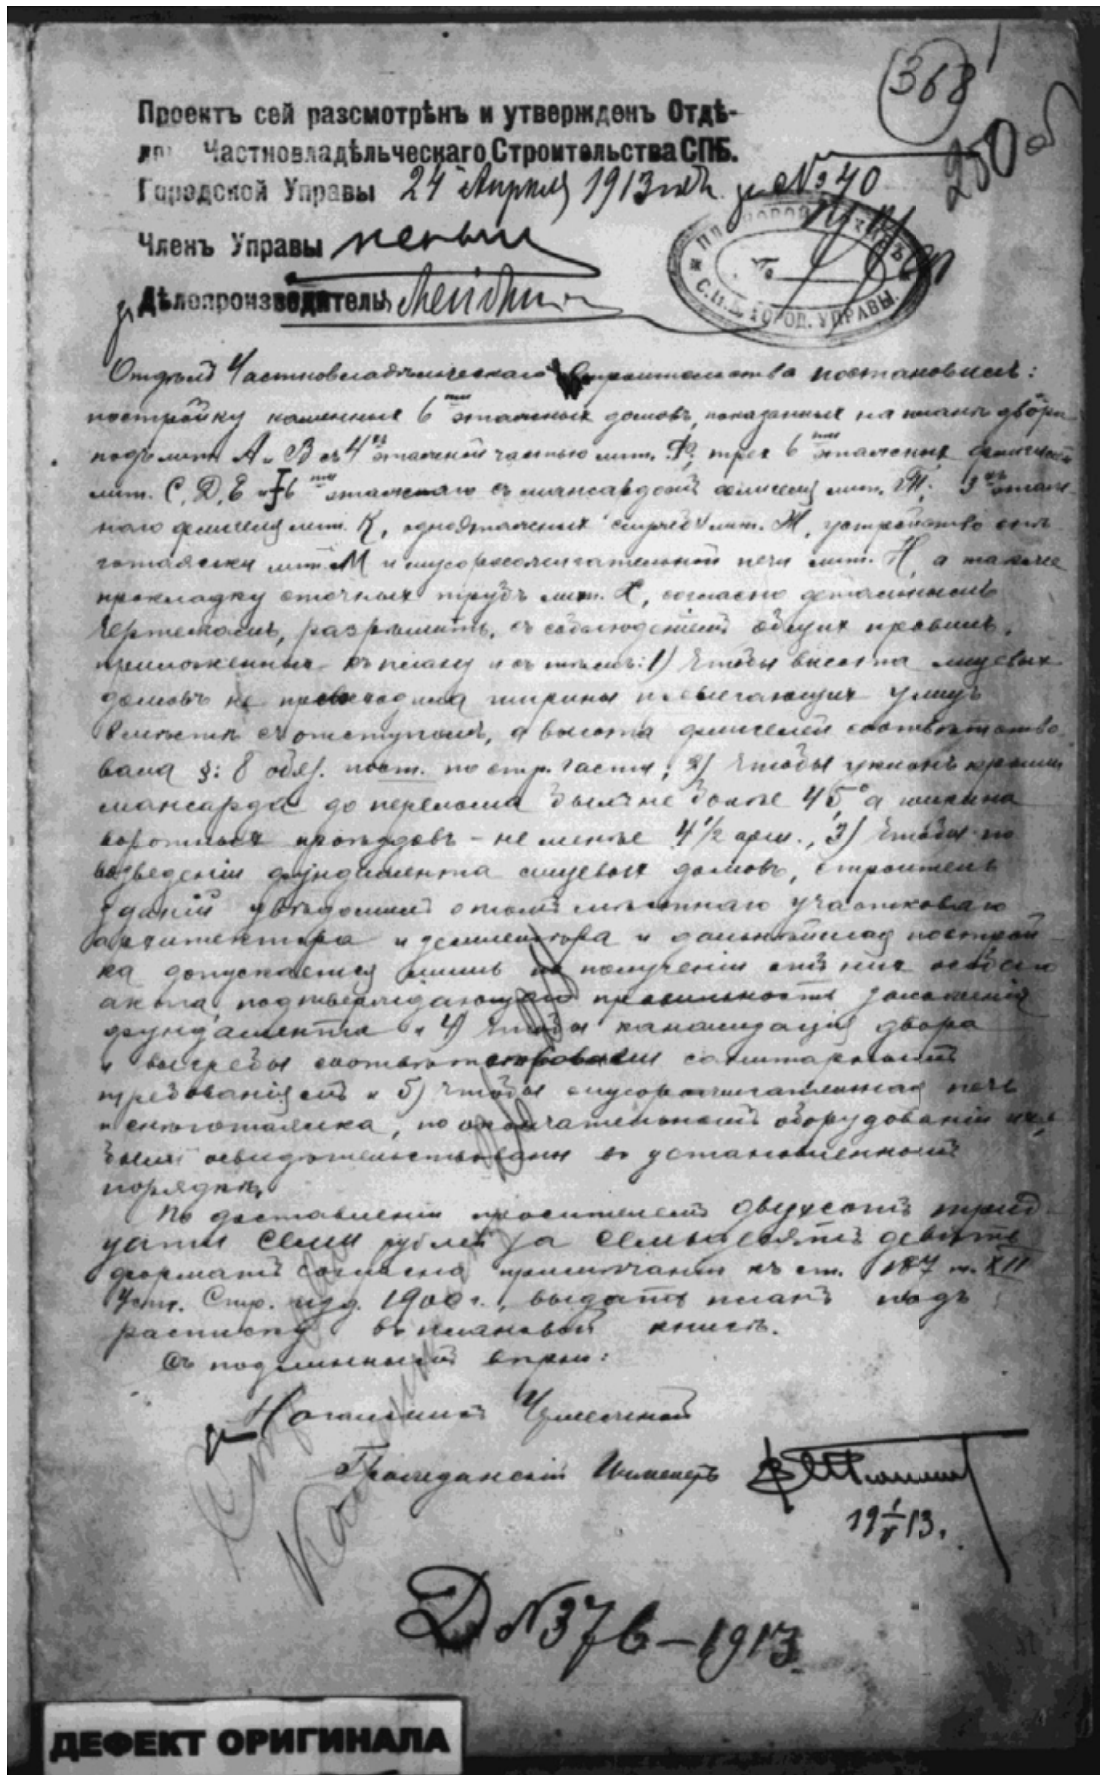 (368
250 об
Проектъ сей разсмотрѣнъ и утвержденъ Отдѣ-
ло Частновладѣльческаго Строительства СПБ.
Городской Управы 24 Апрѣля 1913 года за № 40
Членъ Управы
Дѣлопроизводитель
С.П.Б. ГОРОД. УПРАВЫ.
Отдѣлъ Частновладѣльческаго Строительства постановилъ:
постройку каменныхъ 6ти этажныхъ домовъ, показанныхъ на планѣ двора
подъ лит. А и В съ 4хъ этажной частью лит. трех 6ти этажныхъ флигелей
лит. С, D, E и 6ти этажнаго съ мансардой флигеля лит. 3хъ этаж-
наго флигеля лит. К, одноэтажныхъ службъ лит. Ж, устройство снѣ-
готаялки лит. М и мусоросожигательной печи лит. Н, а также
прокладку сточныхъ трубъ лит. Х, согласно детальнымъ
чертежамъ, разрѣшить, съ соблюденіемъ общихъ правилъ,
приложенныхъ къ плану и съ тѣмъ: 1) чтобы высота лицевыхъ
домовъ не превосходила ширины прилегающихъ улицъ
вмѣстѣ съ отступомъ, а высота флигелей соотвѣтство-
вала §: 8 обяз. пост. по стр. части; 2) чтобы уклонъ крыши
мансарда до перелома былъ не болѣе 45° а ширина
воротныхъ проѣздовъ - не менѣе 4½ арш., 3) чтобы по
возведеніи фундамента лицевыхъ домовъ, строитель
зданій увѣдомилъ о томъ мѣстнаго участковаго
архитектора и землемѣра и дальнѣйшая построй-
ка допускается лишь по полученіи отъ нихъ особаго
акта, подтверждающаго правильность заложенія
фундамента и 4) чтобы канализація двора
и выгребы соотвѣтствовали санитарнымъ
требованіямъ и 5) чтобы мусоросжигательная печь
и снѣготаялка, по окончательномъ оборудованіи ихъ,
были освидѣтельствованы въ установленномъ
порядкѣ.
По доставленіи просителемъ двухсотъ трид-
цати семи рублей за семьдесятъ девять
форматъ согласно примѣчанія къ ст. 187 т. XII
Уст. Стр. изд. 1900 г., выдать планъ подъ
расписку въ плановой книгѣ.
Съ подлиннымъ вѣрно:
Чертежной
Гражданскій Инженеръ
19 I/V 13.
Д №376-1913
ДЕФЕКТ ОРИГИНАЛА